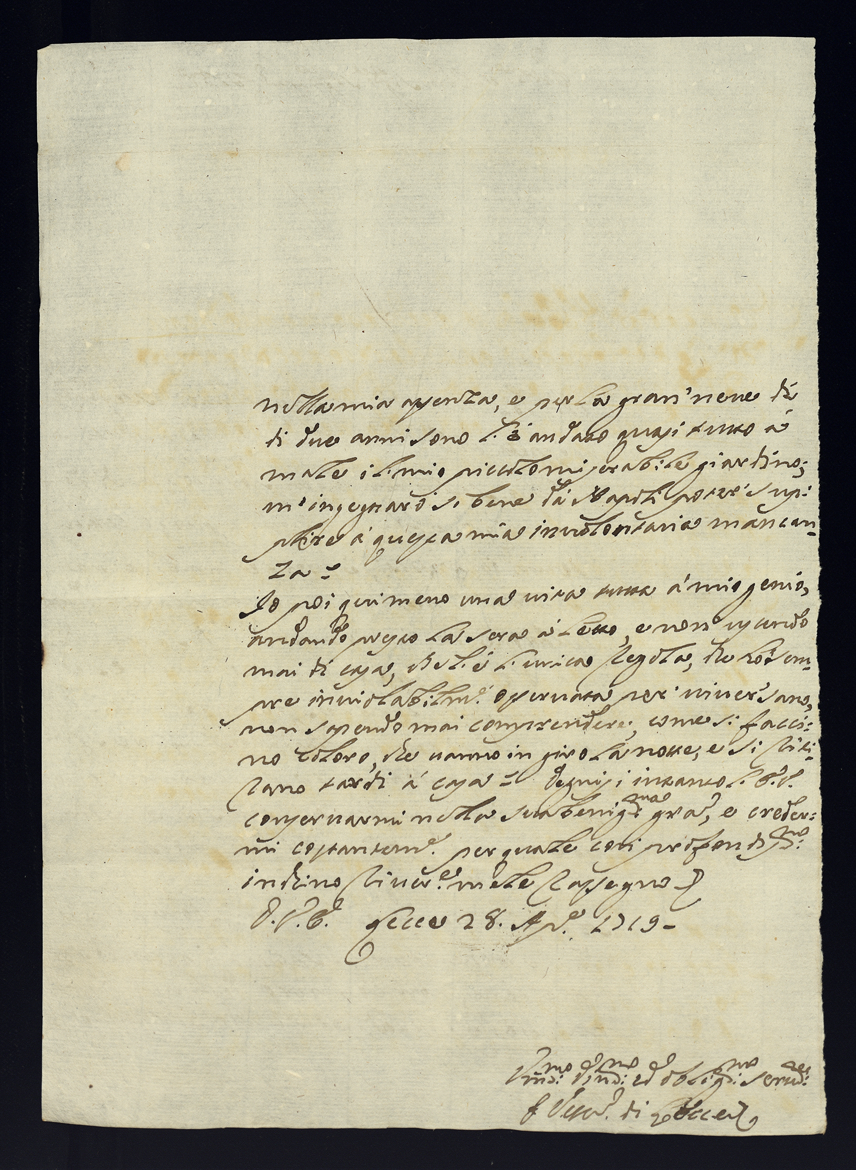 nella mia assenza, e per la gran' neve di
di due anni sono l'è andato quasi tutto à
male il mio piccolo miserabile giardino;
m'ingegnarò si bene dà Napoli poter' sup:
plire à questa mia involontaria mancan-
za =
Io poi quì meno una vita tutta à mio genio,
andando presto la sera à letto, e non uscendo
mai di casa, che l'è l'unica regola, che hò sem-
pre inviolabilm.e osservata per' viver' sano,
non sapendo mai comprendere, come si facci:
no coloro, che vanno in giro la notte, e si riti:
rano tardi à casa = Degnisi intanto V.S.
conservarmi nella sua benig:ma graz, e creder:
mi costantem.e per quale con profondiss:mo
inchino river.e m.te rassegno
Lecce 28. Ap.e 1719-
ed oblig:mo
di Lecce